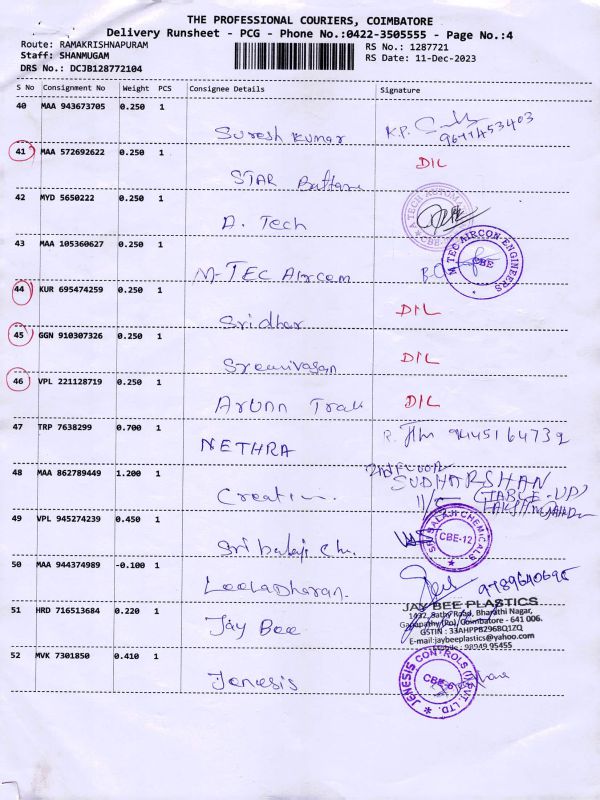 THE PROFESSIONAL COURIERS, COIMBATORE
Delivery Runsheet - PCG - Phone No.:0422-3505555 - Page No.:4
Route: RAMAKRISHNAPURAM
RS No.: 1287721
Staff: SHANMUGAM
RS Date: 11-Dec-2023
DRS No.: DCJB128772104
S No Consignment No Weight PCS Consignee Details Signature
40 MAA 943673705 0.250 1
Suresh Kumar K.P.
41 MAA 572692622 0.250 1
STAR D/L
42 MYD 5650222 0.250 1
A. Tech
43 MAA 105360627 0.250 1
M-TEC Aircon
M TEC AIRCON ENGINEERS
CBE
44 KUR 695474259 0.250 1
Sridhar D/L
45 GGN 910307326 0.250 1
Sreenivasan D/L
46 VPL 221128719 0.250 1
Arunn D/L
47 TRP 7638299 0.700 1
NETHRA 9445164739
48 MAA 862789449 1.200 1
2nd FLOOR
SUDHARSHAN
49 VPL 945274239 0.450 1
Sri balaji
SRI BALAJI CHEMICALS
CBE-12
50 MAA 944374989 -0.100 1
Leeladharan.
51 HRD 716513684 0.220 1
Jay Bee
JAY BEE PLASTICS
1432, Sathy Road, Bharathi Nagar,
Ganapathy (Po), Coimbatore - 641 006.
GSTIN : 33AHPPB2968Q1ZQ
E-mail:jaybeeplastics@yahoo.com
Mobile : 98949 95455
52 MVK 7301850 0.410 1
Jenesis
JENESIS CONTROLS (I) PVT. LTD.
CBE-6